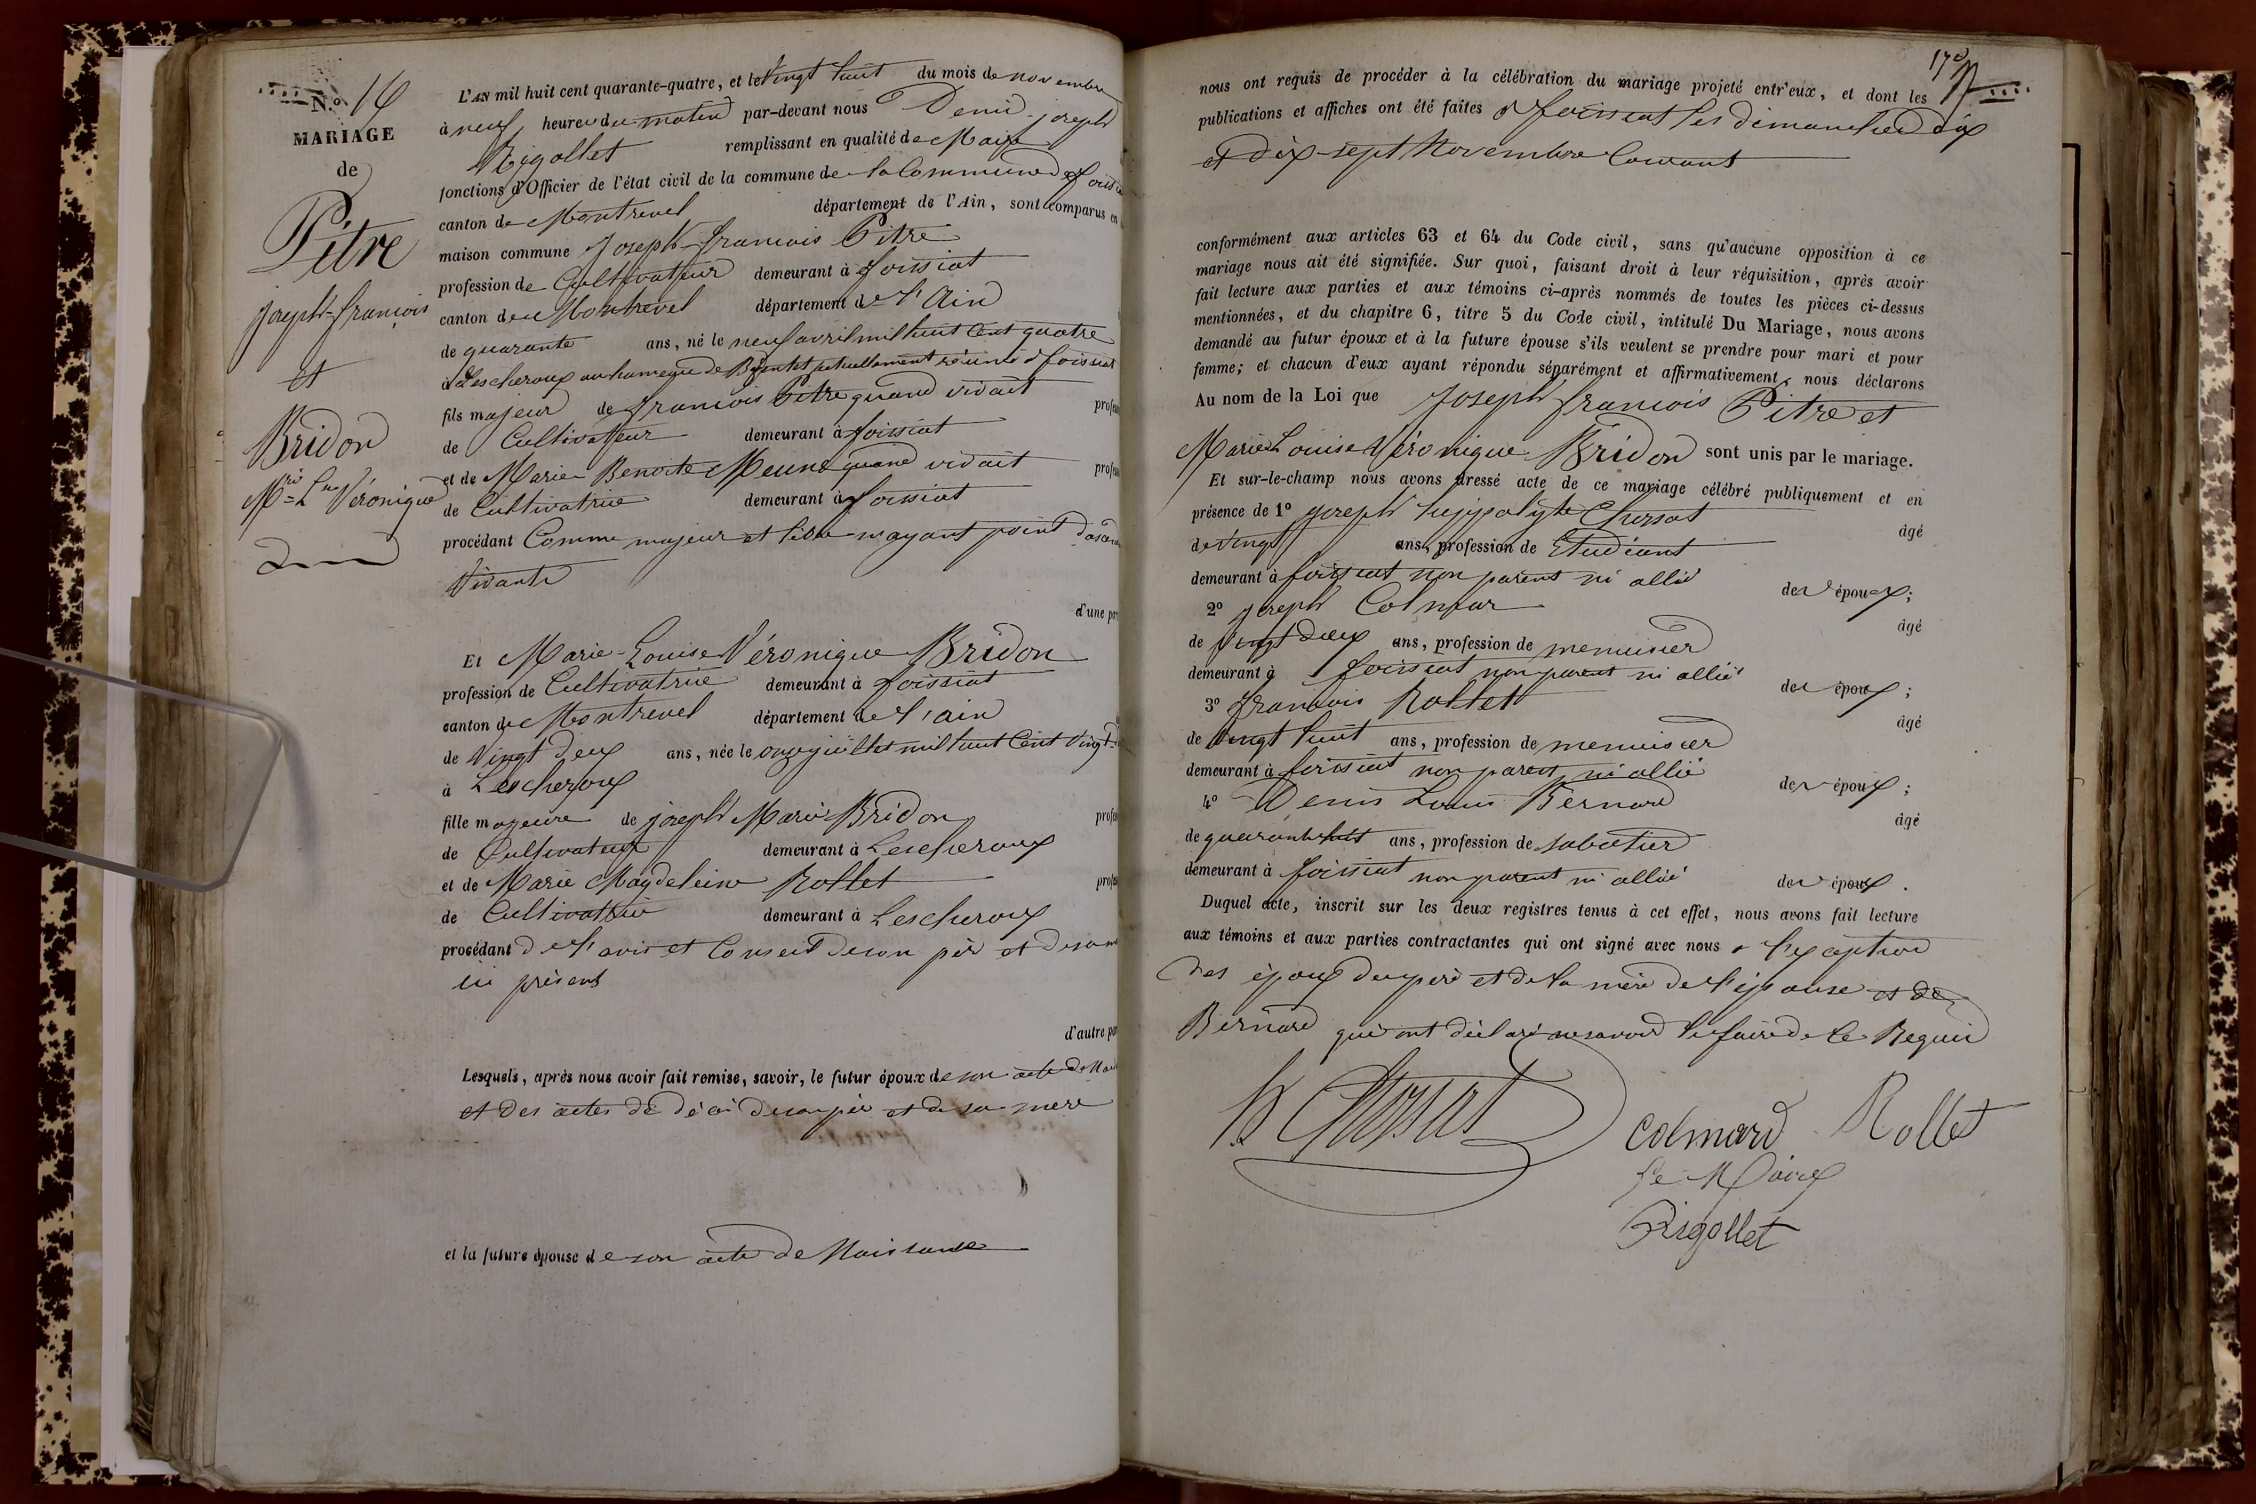 N.º 14
MARIAGE
de
Pitre
joseph-françois
et
Bridon
Mrie Lse Véronique
L'AN mil huit cent quarante-quatre, et le vingt huit du mois de novembre
à neuf heures du matin par-devant nous Denis joseph
Rigollet remplissant en qualité de Maire
fonctions d'Officier de l'état civil de la commune de la Commune de foissiat
canton de Montrevel département de l'Ain, sont comparus en
maison commune Joseph-françois Pitre
profession de Cultivateur demeurant à foissiat
canton de Montrevel département de l'Ain
de quarante ans, né le neuf avril mil huit cent quatre
à Lescheroux au hameau de actuellement réuni à foissiat
fils majeur de françois Pitre quand vivait
de Cultivateur demeurant à foissiat
et de Marie Benoite Meune quand vivait
de Cultivatrice demeurant à foissiat
procédant Comme majeur et libre n'ayant point
vivants
d'une par
Et Marie-Louise Véronique Bridon
profession de Cultivatrice demeurant à foissiat
canton de Montrevel département de l'ain
de vingt deux ans, née le onze juillet mil huit cent vingt
à Lescheroux
fille majeure de joseph Marie Bridon
de Cultivateur demeurant à Lescheroux
et de Marie Magdeleine Rollet
de Cultivatrice demeurant à Lescheroux
procédant de l'avis et Conseil de son père et de sa
ici présents
d'autre par
Lesquels, après nous avoir fait remise, savoir, le futur époux de son acte de
et des actes de décès de son père et de sa mère
et la future épouse de son acte de Naissance
170
nous ont requis de procéder à la célébration du mariage projeté entr'eux, et dont les
publications et affiches ont été faites à foissiat les dimanches dix
et dix-sept Novembre Courant
conformément aux articles 63 et 64 du Code civil, sans qu'aucune opposition à ce
mariage nous ait été signifiée. Sur quoi, faisant droit à leur réquisition, après avoir
fait lecture aux parties et aux témoins ci-après nommés de toutes les pièces ci-dessus
mentionnées, et du chapitre 6, titre 5 du Code civil, intitulé Du Mariage, nous avons
demandé au futur époux et à la future épouse s'ils veulent se prendre pour mari et pour
femme; et chacun d'eux ayant répondu séparément et affirmativement, nous déclarons
Au nom de la Loi que Joseph françois Pitre et
Marie Louise Véronique Bridon sont unis par le mariage.
Et sur-le-champ nous avons dressé acte de ce mariage célébré publiquement et en
présence de 1º joseph hyppolyte Chossat âgé
de vingt ans, profession de Etudiant
demeurant à foissiat non parent ni allié des époux;
2º joseph Colmar âgé
de vingt deux ans, profession de menuisier
demeurant à foissiat non parent ni allié des époux;
3º françois Rollet âgé
de vingt huit ans, profession de menuisier
demeurant à foissiat non parent ni allié des époux;
4º Denis Louis Bernard âgé
de quarante huit ans, profession de sabotier
demeurant à foissiat non parent ni allié des époux.
Duquel acte, inscrit sur les deux registres tenus à cet effet, nous avons fait lecture
aux témoins et aux parties contractantes qui ont signé avec nous à l'exception
des époux du père et de la mère de l'épouse et de
Bernard qui ont déclaré ne savoir le faire de ce Requis
h Chossat
Colmard Rollet
le Maire
Rigollet